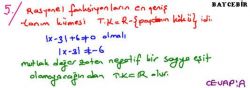 BAYCEBİR
5./ Rasyonel fonksiyonların en geniş
tanım kümesi T.K=R-{paydanın kökü} idi.
|x-3|+6≠0 olmalı
|x-3|≠-6
mutlak değer zaten negatif bir sayıya eşit
olamayacağından T.K=R olur.
CEVAP:A